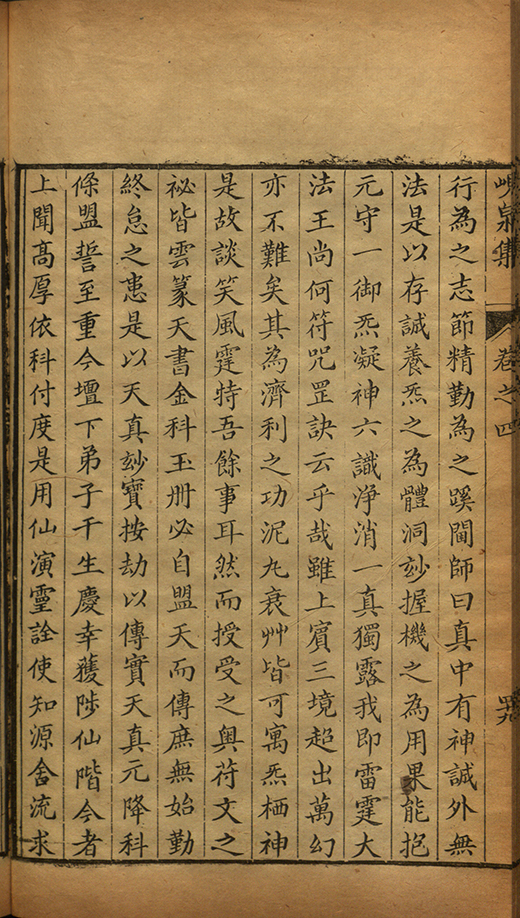 峴泉集 卷之四 四九
行為之志節精勤為之蹊閫師曰真中有神誠外無
法是以存誠養炁之為體洞玅握機之為用果能抱
元守一御炁凝神六識净消一真獨露我即雷霆大
法王尚何符咒罡訣云乎哉雖上賓三境超出萬幻
亦不難矣其為濟利之功泥丸衰艸皆可寓炁栖神
是故談笑風霆特吾餘事耳然而授受之奧符文之
祕皆雲篆天書金科玉册必自盟天而傳庶無始勤
終怠之恚是以天真玅寶按劫以傳實天真元降科
條盟誓至重今壇下弟子千生慶幸獲陟仙階今者
上聞高厚依科付度是用仙演靈詮使知源舍流求